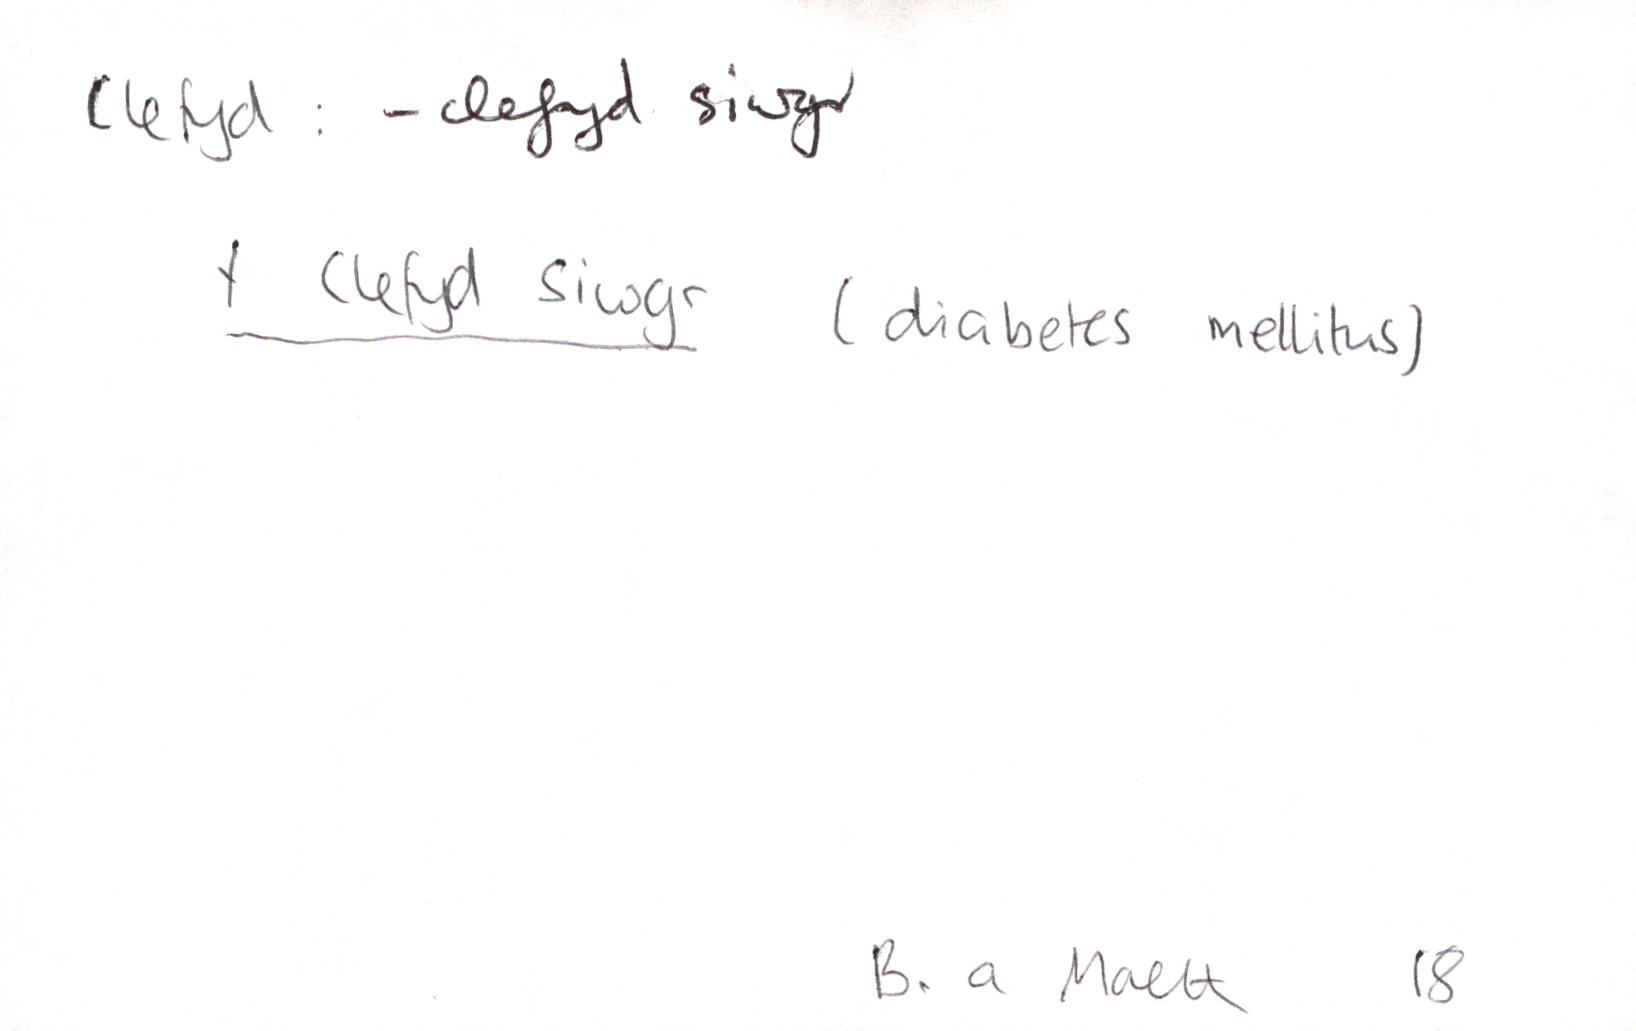 Clefyd : - clefyd siwgr
† Clefyd siwgr (diabetes mellitus)
B. a Maeth 18